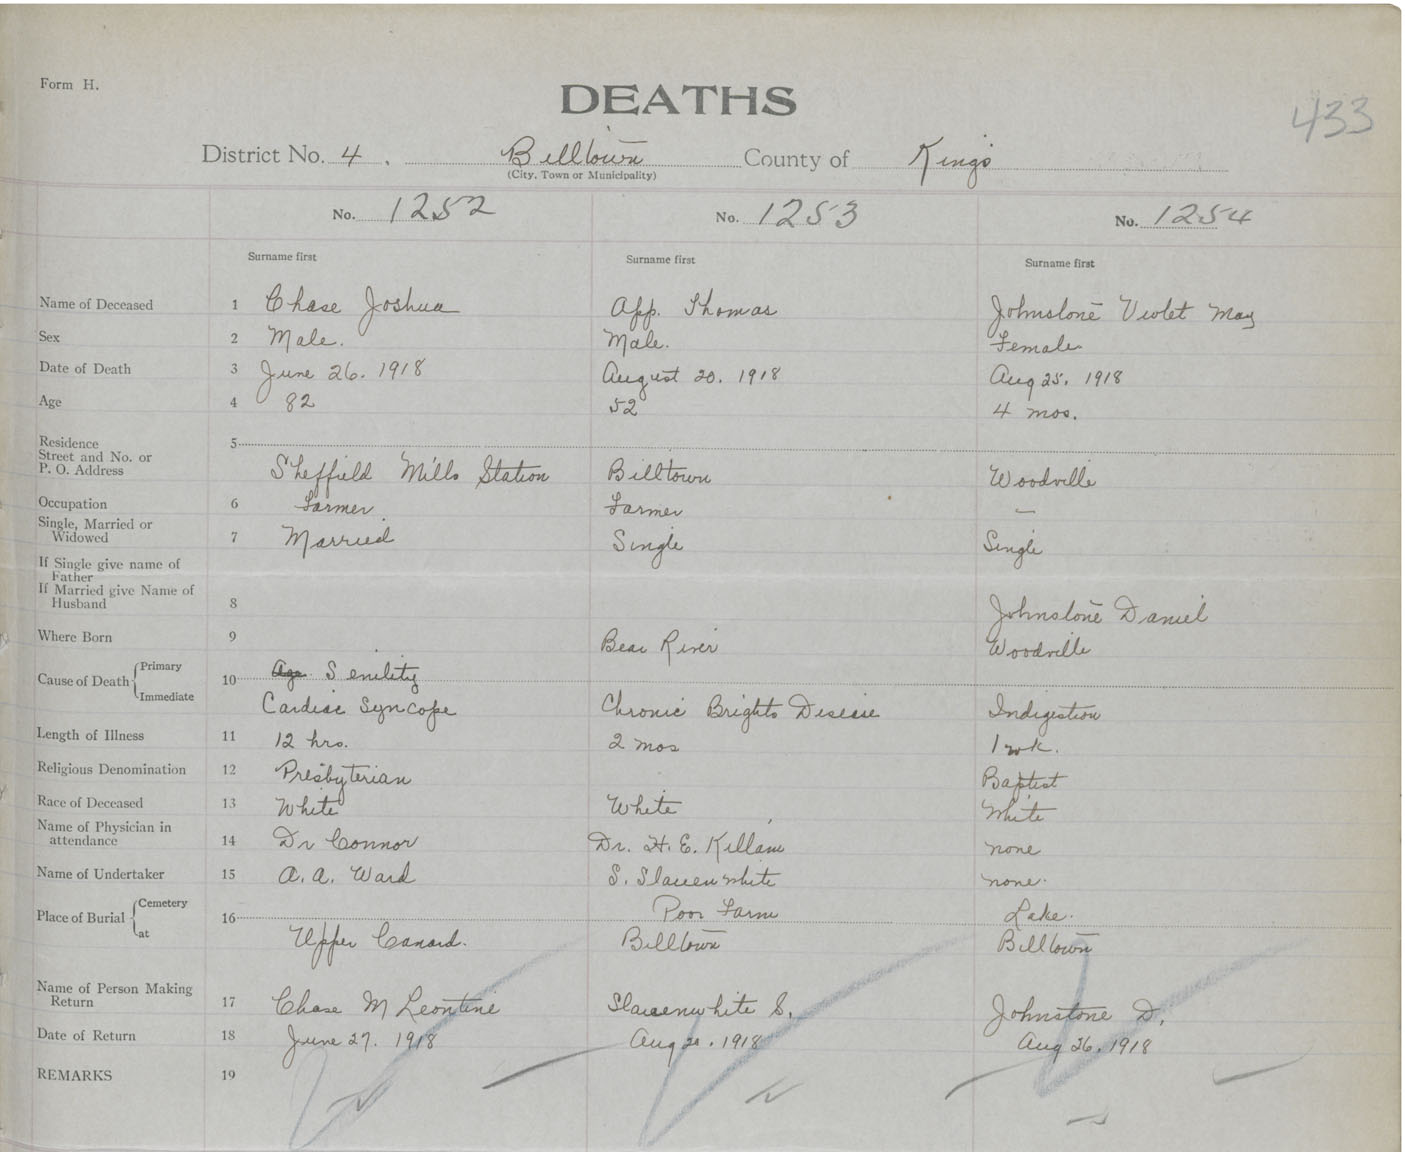 Form H.
DEATHS
433
District No. 4. Billtown County of Kings
(City, Town or Municipality)
No. 1252 No. 1253 No. 1254
Surname first Surname first Surname first
Name of Deceased 1 Chase Joshua App. Thomas Johnstone Violet May
Sex 2 Male. Male. Female
Date of Death 3 June 26. 1918 August 20. 1918 Aug 25. 1918
Age 4 82 52 4 mos.
Residence 5
Street and No. or
P. O. Address Sheffield Mills Station Billtown Woodville
Occupation 6 Farmer Farmer —
Single, Married or
Widowed 7 Married Single Single
If Single give name of
Father
If Married give Name of
Husband 8 Johnstone Daniel
Where Born 9 Bear River Woodville
Cause of Death { Primary 10 Age Senility
Immediate Cardiac Syncope Chronic Brights Disease Indigestion
Length of Illness 11 12 hrs. 2 mos 1 wk.
Religious Denomination 12 Presbyterian Baptist
Race of Deceased 13 White White White
Name of Physician in
attendance 14 Dr Connor Dr. H. E. Killam none
Name of Undertaker 15 A. A. Ward S. Slauenwhite none.
Place of Burial { Cemetery 16 Poor Farm Lake.
at Upper Canard. Billtown Billtown
Name of Person Making
Return 17 Chase M Leontine Slauenwhite S. Johnstone D.
Date of Return 18 June 27. 1918 Aug 20. 1918 Aug 26. 1918
REMARKS 19